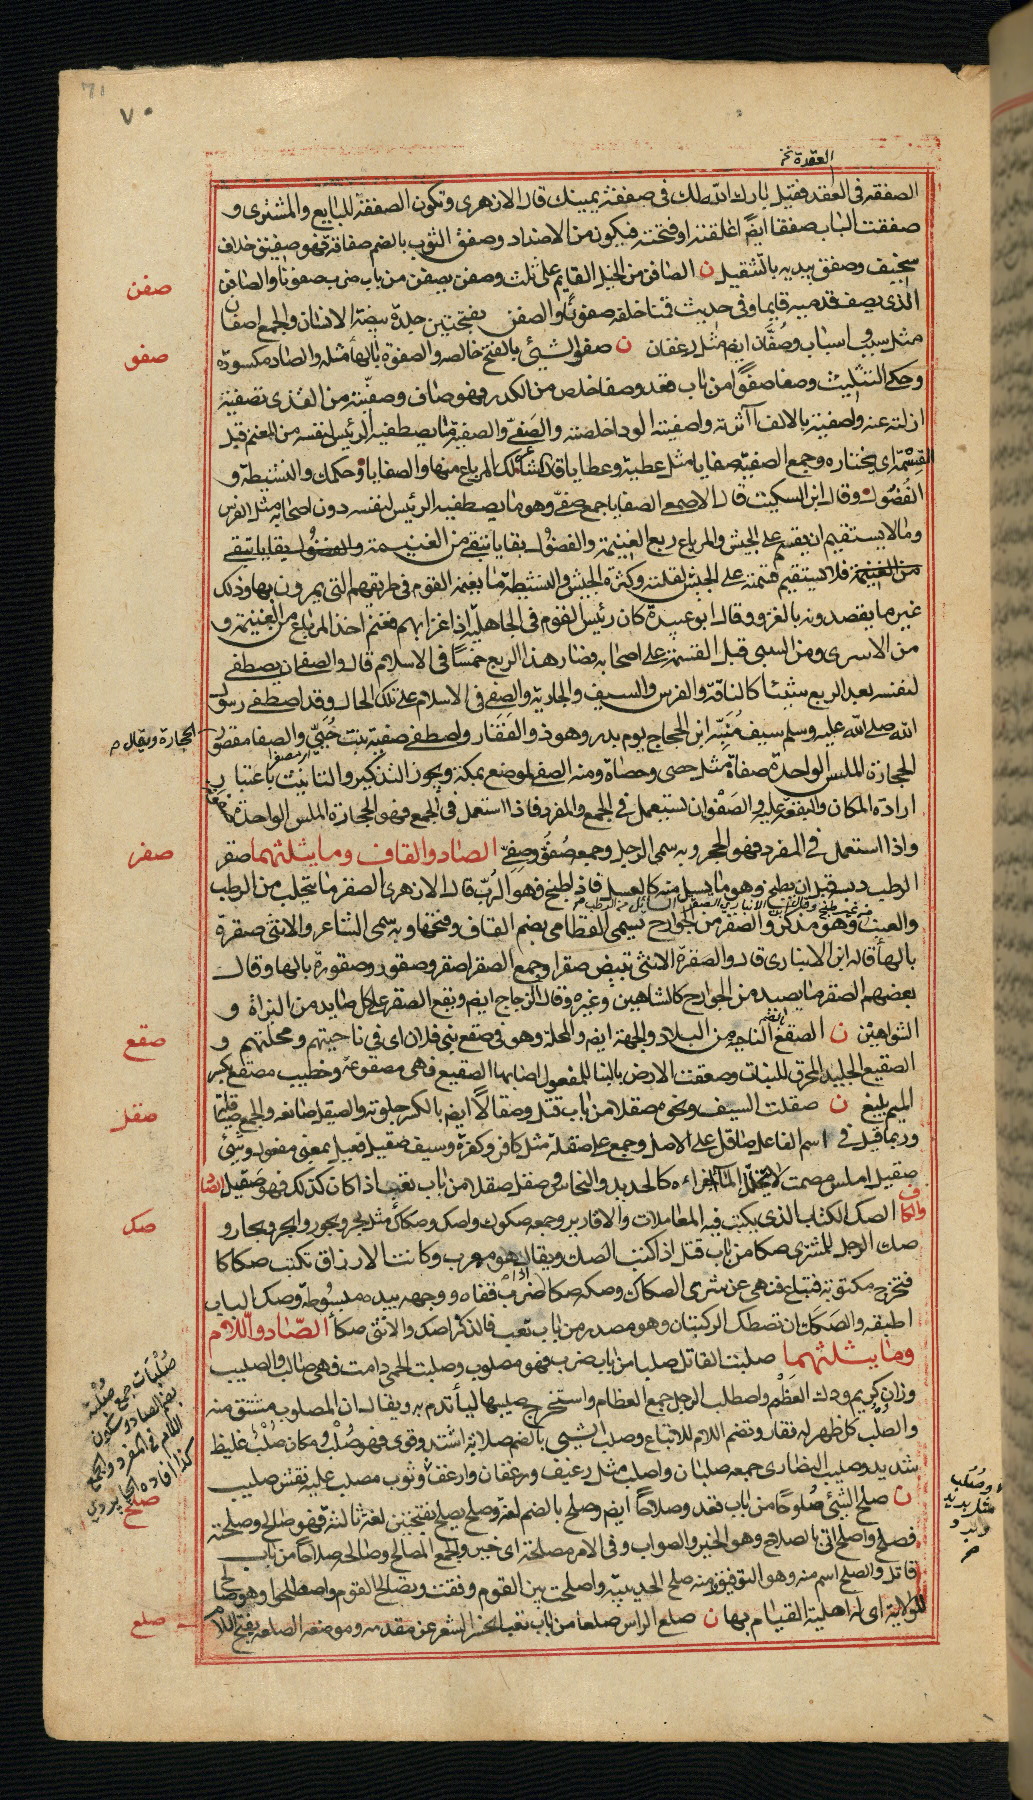 ٧٠
العقدة نخ
الصفقة فى العقد فقيل بارك الله لك فى صفقة يمينك قال الازهرى وتكون الصفقة للبايع والمشترى و
صفقت الباب صفقا ايضً اغلقته او فتحته فيكون من الاضداد وصفق الثوب بالضم صفاقة فهو صفيق خلاف
سخيف وصفق بيديه بالتثقيل ن الصافن من الخيل القايم على ثلث وصفن يصفن من باب ضرب صفونا والصافن
صفن
الذى يصف قدميه قايما وفى حديث قمنا خلفه صفونًا والصفن بفتحتين جلدة بيضة الانسان والجمع اصفان
مثل سبب واسباب وصُفَّان ايض مثل رغفان ن صفو الشيئ بالفتح خالصه والصفوة بالهأ مثله والصاد مكسورة
صفو
وحكى التثليث وصفا صفوًا من باب قعد وصفاخلص من الكدر فهو صاف وصفّيته من القذى تصفية
ازلته عنه واصفيته بالالف آثرته واصفيته الود اخلصته والصَفىّ والصفية ما يصطفيه الرئيس لنفسه من المغنم قبل
القِسْمة اى يختاره وجمع الصفيّة صفايا مثل عطية وعطايا قال الشاعر لك المرباع منها والصفايا وحكمك والنشيطة و
الفُضُول وقال ابن السكيت قال الاصمعى الصفايا جمع صفىّ وهو ما يصطفيه الرئيس لنفسه دون اصحابه مثل الفرس
وما لا يستقيم ان يقسم على الجيش والمرباع ربع الغنيمة والفضول بقايا تبقى من الغنيمة والفضول بقايا تبقى
من الغنيمة فلا يستقيم قسمته على الجيش لقلته وكثرة الجيش والنشيطة ما يغنمه القوم فى طريقهم التى يمرون بها وذلك
غير ما يقصدونه بالغزو وقال ابو عبيدة كان رئيس القوم فى الجاهلية اذا غزا بهم فغنم اخذ المرباع من الغنيمة و
من الاسرى ومن السبى قبل القسمة على اصحابه فصار هذا الربع خمسًا فى الاسلام قال والصفى ان يصطفى
لنفسه بعد الربع شيئا كالناقة والفرس والسيف والجارية والصفى فى الاسلام على تلك الحال وقد اصطفى رسول
الله صلى الله عليه وسلم سيف مُنَبِّه ابن الحجاج يوم بدر وهو ذو الفَقَار واصطفى صفية بنت حُيَىّ والصفا مقصور
الحجارة ويقال م
الحجارة الملس الواحدة صفاة مثل حصى وحصاة ومنه الصفا لموضع بمكة ويجوز التذكير والتانيث باعتبار
ارادة المكان والبقعة عليه والصَفْوان تستعمل فى الجمع والمفرد فاذا استعمل فى الجمع فهو الحجارة الملس الواحدة
واذا استعمل فى المفرد فهو الحجر وبه سمى الرجل وجمعه صُفِىّ وصِفِىّ الصاد والقاف وما يثلثهما صقر
صقر
الرطب دبسه قبل ان يطبخ وهو ما يسيل منه كالعسل فاذ اطبخ فهو الرُبّ قال الازهرى الصقر ما يتحلب من الرطب
من غير طبخ وقال ابن الانبارى الصقر السائل من الرطب
والعنب وهو مذكر والصقر من الجوارح تسمى القطامى بضم القاف وفتحها وبه سمى الشاعر والانثى صقرة
بالهأ قاله ابن الانبارى قال والصقرة الانثى تبيض صقرا وجمع الصقر اصقر وصقور وصقورة بالها وقال
بعضهم الصقر ما يصيد من الجوارح كالشاهين وغيره وقال الزجاج ايض ويقع الصقر على كل صايد من البزاة و
الشواهين ن الصقع الناحية من البلاد والجهة ايض والمحلة وهو فى صقع بنى فلان اى فى ناحيتهم ومحلتهم و
صقع
الصقيع الجليد المحرق للنبات وصقعت الارض بالبنا للمفعول اصابها الصقيع فهى مصقوعة وخطيب مصقع بكسر
الميم بليغ ن صقلت السيف ونحوه صقلا من باب قتل وصقالًا ايض بالكسر جلوته والصيقل صانعه والجمع صياقلة
صقل
وربما قيل فى اسم الفاعل صاقل على الاصل وجمع على صقلة مثل كافر وكفرة وسيف صقيل فعيل بمعنى مفعول وشئى
صقيل املس مصمت لا يتخلل الماأ اجزاءه كالحديد والنحاس وصقل صقلا من باب تعب اذا كان كذلك فهو صقيل الصاد
والكاف الصك الكتاب الذى يكتب فيه المعاملات والاقارير وجمعه صكوك واصك وصكاك مثل بحر وبحور وابحر وبحار و
صك
صك الرجل للمشترى صكا من باب قتل اذ اكتب الصك ويقال هو معرب وكانت الارزاق تكتب صكاكا
فتخرج مكتوبة فتباع فنهى عن شرى الصكاك وصكه صكا اذا ضرب قفاه ووجهه بيده مبسوطة وصك الباب
اطبقه والصَكَك ان تصطك الركبتان وهو مصدر من باب تعب فالذكر اصك والانثى صكأ الصاد واللام
وما يثلثهما صلبت القاتل صلبا من باب ضرب فهو مصلوب وصلبت الحمى دامت فهى صالب والصليب
وزان كريم ودك العَظْم واصطلب الرجل جمع العظام واستخرج صليبها ليأتدم به ويقال ان المصلوب مشتق منه
والصلب كل ظهر له فقار وتضم اللام للاتباع وصلب الشيئ بالضم صلابة اشتد وقوى فهو صُلْب ومكان صُلْب غليظ
شديد وصليب النصارى جمعه صلبان واصلب مثل رغيف ورغفان وارغف وثوب مصلب عليه نقش صليب
ن صلح الشئى صُلوحًا من باب قعد وصلاحًا ايض وصلح بالضم لغة وصلح يصلح بفتحتين لغة ثالثة فهو صالح وصلحته
صلح
فصلح واصلح اتى بالصلاح وهو الخير والصواب وفى الامر مصلحة اى خير والجمع المصالح وصالحه صلاحًا من باب
قاتل والصلح اسم منه وهو التوفيق ومنه صلح الحديبية واصلحت بين القوم وفقت وتصالح القوم واصطلحوا وهو صالح
للولاية اى له اهلية القيام بها ن صلع الراس صلعا من باب تعب انحسر الشعر عن مقدمه وموضعه الصلعة بفتح اللام
صلع
صُلْبات جمع صُلْبة
بضم الصاد وسكون
اللام فى المفرد والجمع
كذا افاده الجاربردى